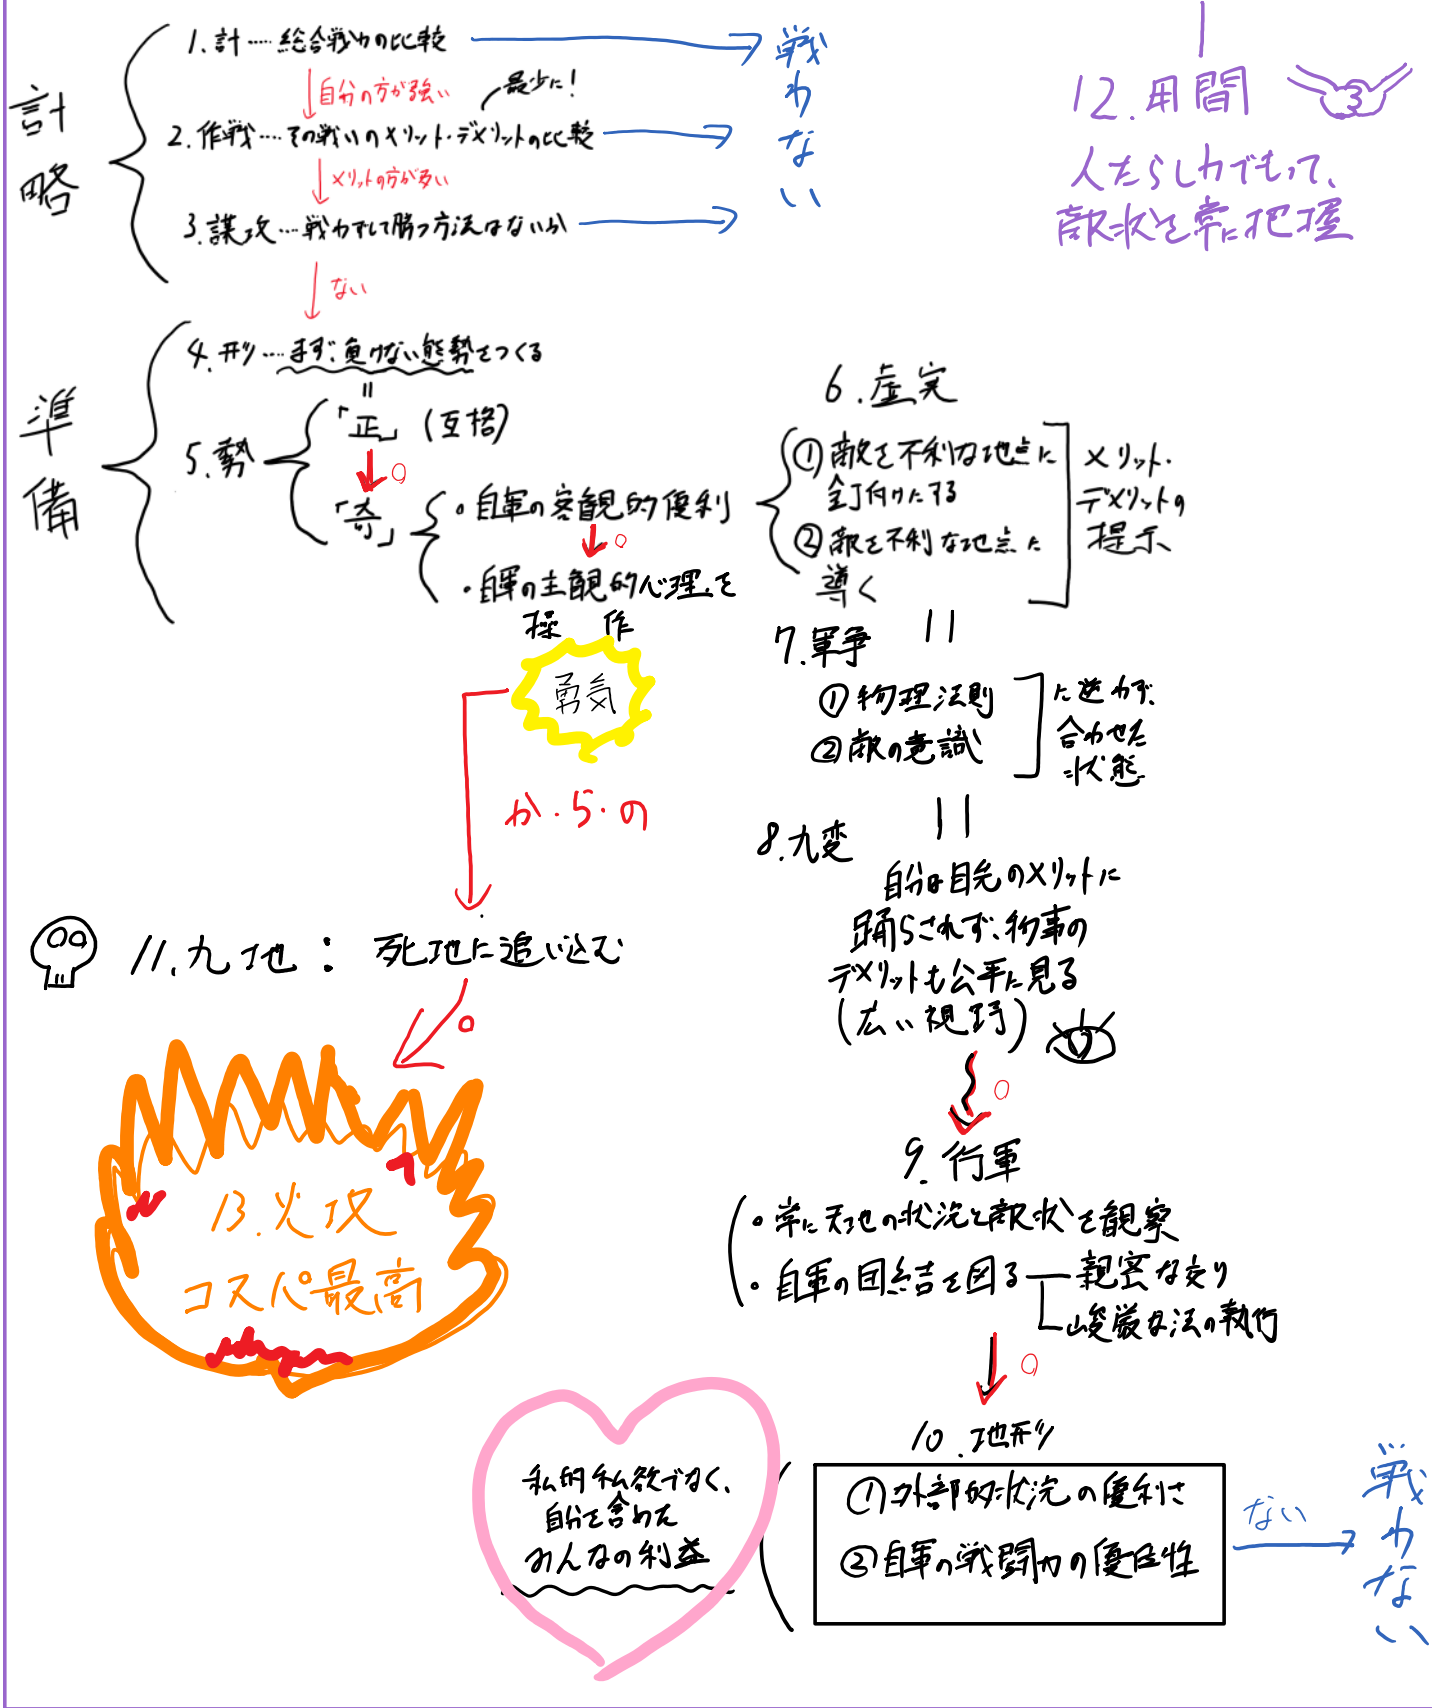 計略
1.計…総合戦力の比較
自分の方が強い
最少に!
2.作戦…その戦いのメリット・デメリットの比較
メリットの方が多い
3.謀攻…戦わずして勝つ方法はないか
ない
戦わない
12.用間
人たらし力でもって、
敵状を常に把握
準備
4.形…まず、負けない態勢をつくる
=
5.勢
「正」(互格)
「奇」
・自軍の客観的優利
・自軍の主観的心理を
操作
勇気
か・ら・の
6.虚実
①敵を不利な地点に
釘付けにする
②敵を不利な地点に
導く
メリット・
デメリットの
提示
=
7.軍争
①物理法則
②敵の意識
に逆わず、
合わせた
状態
=
8.九変
自分は目先のメリットに
踊らされず、物事の
デメリットも公平に見る
(広い視野)
9.行軍
・常に天地の状況と敵状を観察
・自軍の団結を図る
親密な交り
峻厳な法の執行
10.地形
①外部的状況の優利さ
②自軍の戦闘力の優位性
ない
戦わない
私的私欲でなく、
自分を含めた
みんなの利益
11.九地:死地に追い込む
13.火攻
コスパ最高